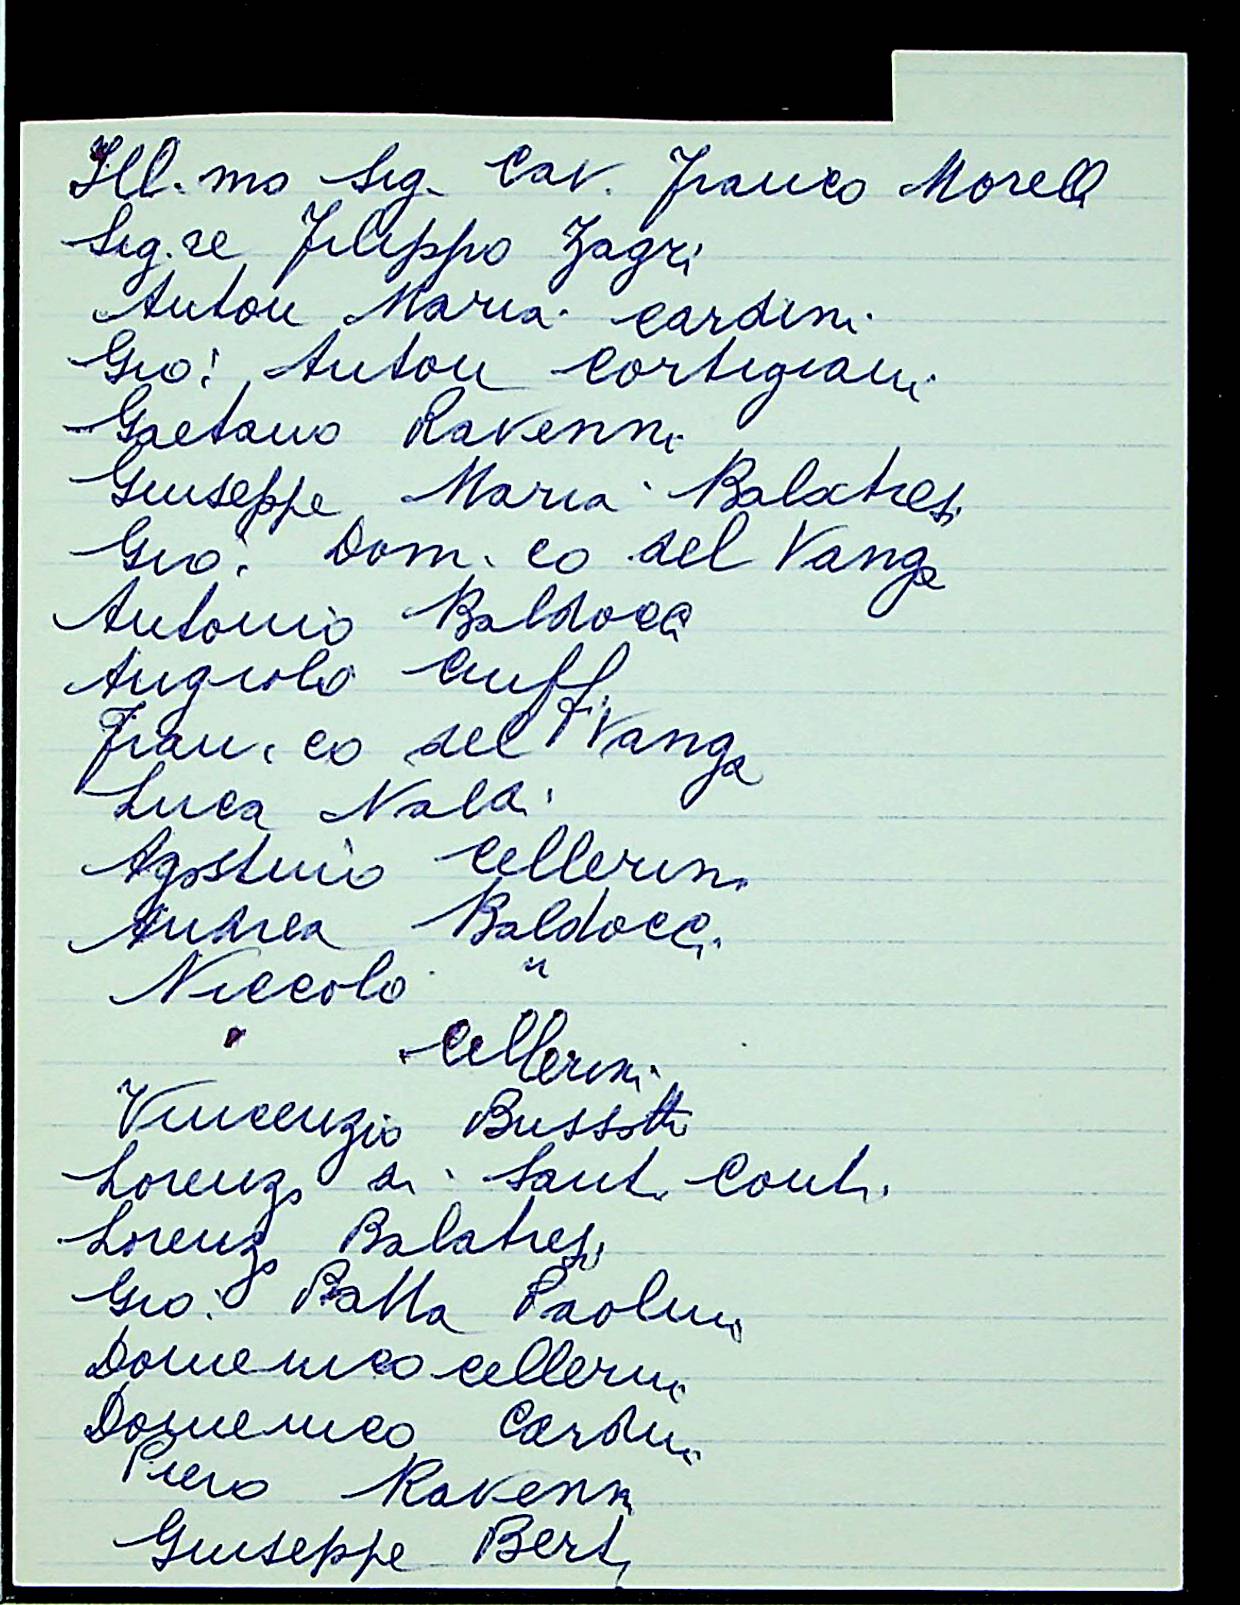 Ill.mo Sig. Cav. Franco Morelli
Sig.re Filippo Zagri
Anton Maria Cardini
Gio: Anton Cortigiani
Gaetano Ravenni
Giuseppe Maria Balatresi
Gio: Dom.co del Vanga
Antonio Baldocci
Angiolo Ciuffi
Fran.co del Vanga
Luca Naldi
Agostino Cellerini
Andrea Baldocci
Niccolò "
" Cellerini
Vincenzio Bussotti
Lorenzo di Santi Conti
Lorenzo Balatresi
Gio: Batta Paolini
Domenico Cellerini
Domenico Cardini
Piero Ravenni
Giuseppe Berti